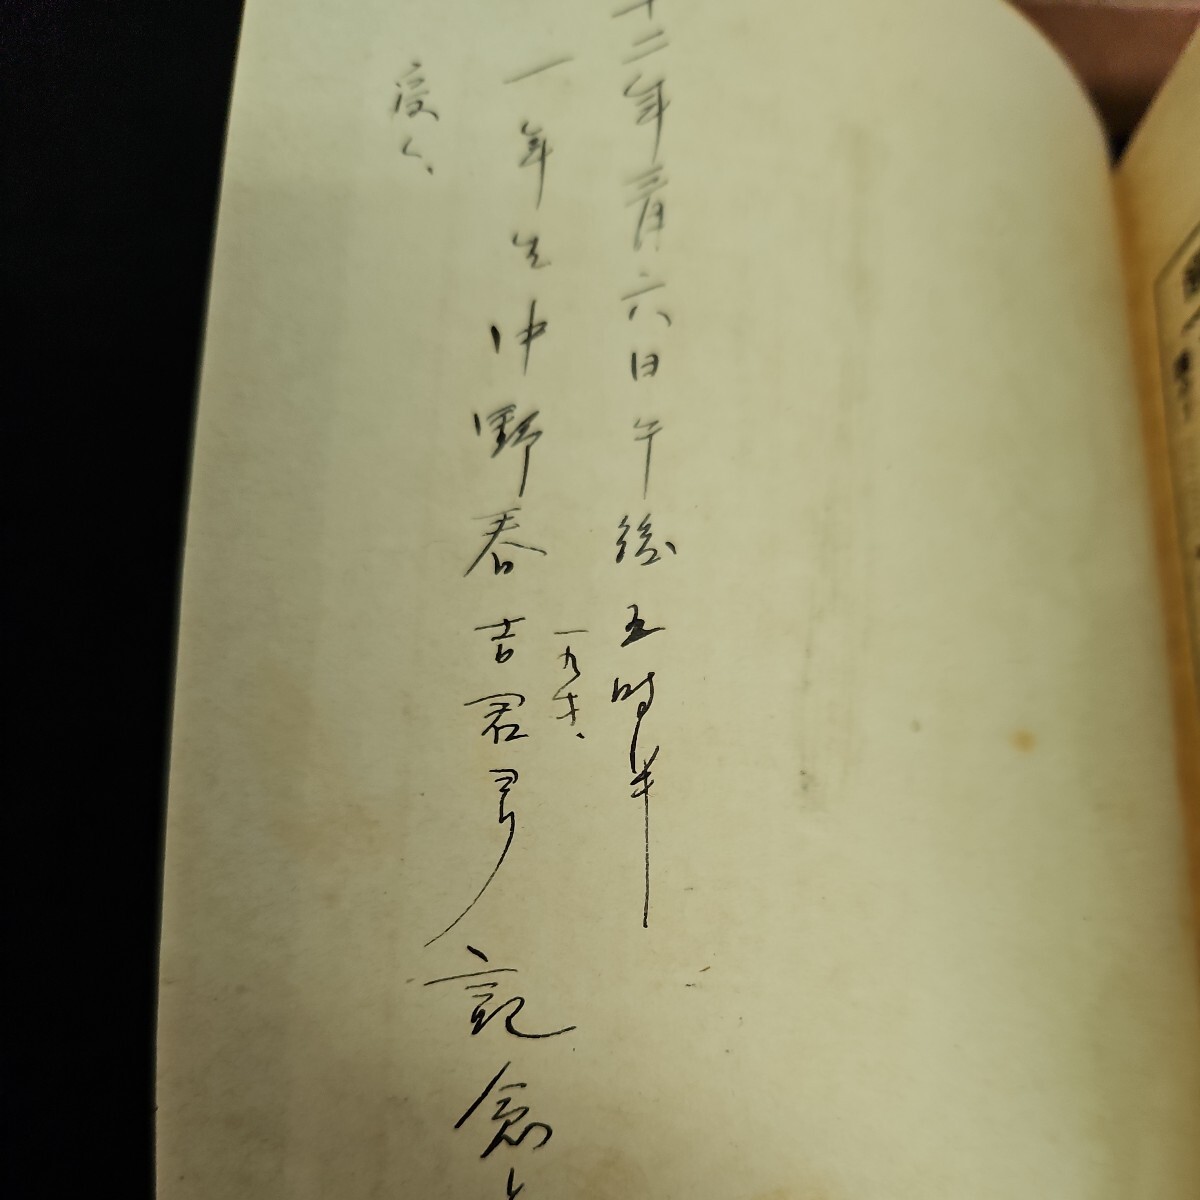 十二年三月六日午後五時半
一九才、
一年生中野春吉君ヨリ記念ト
受く、